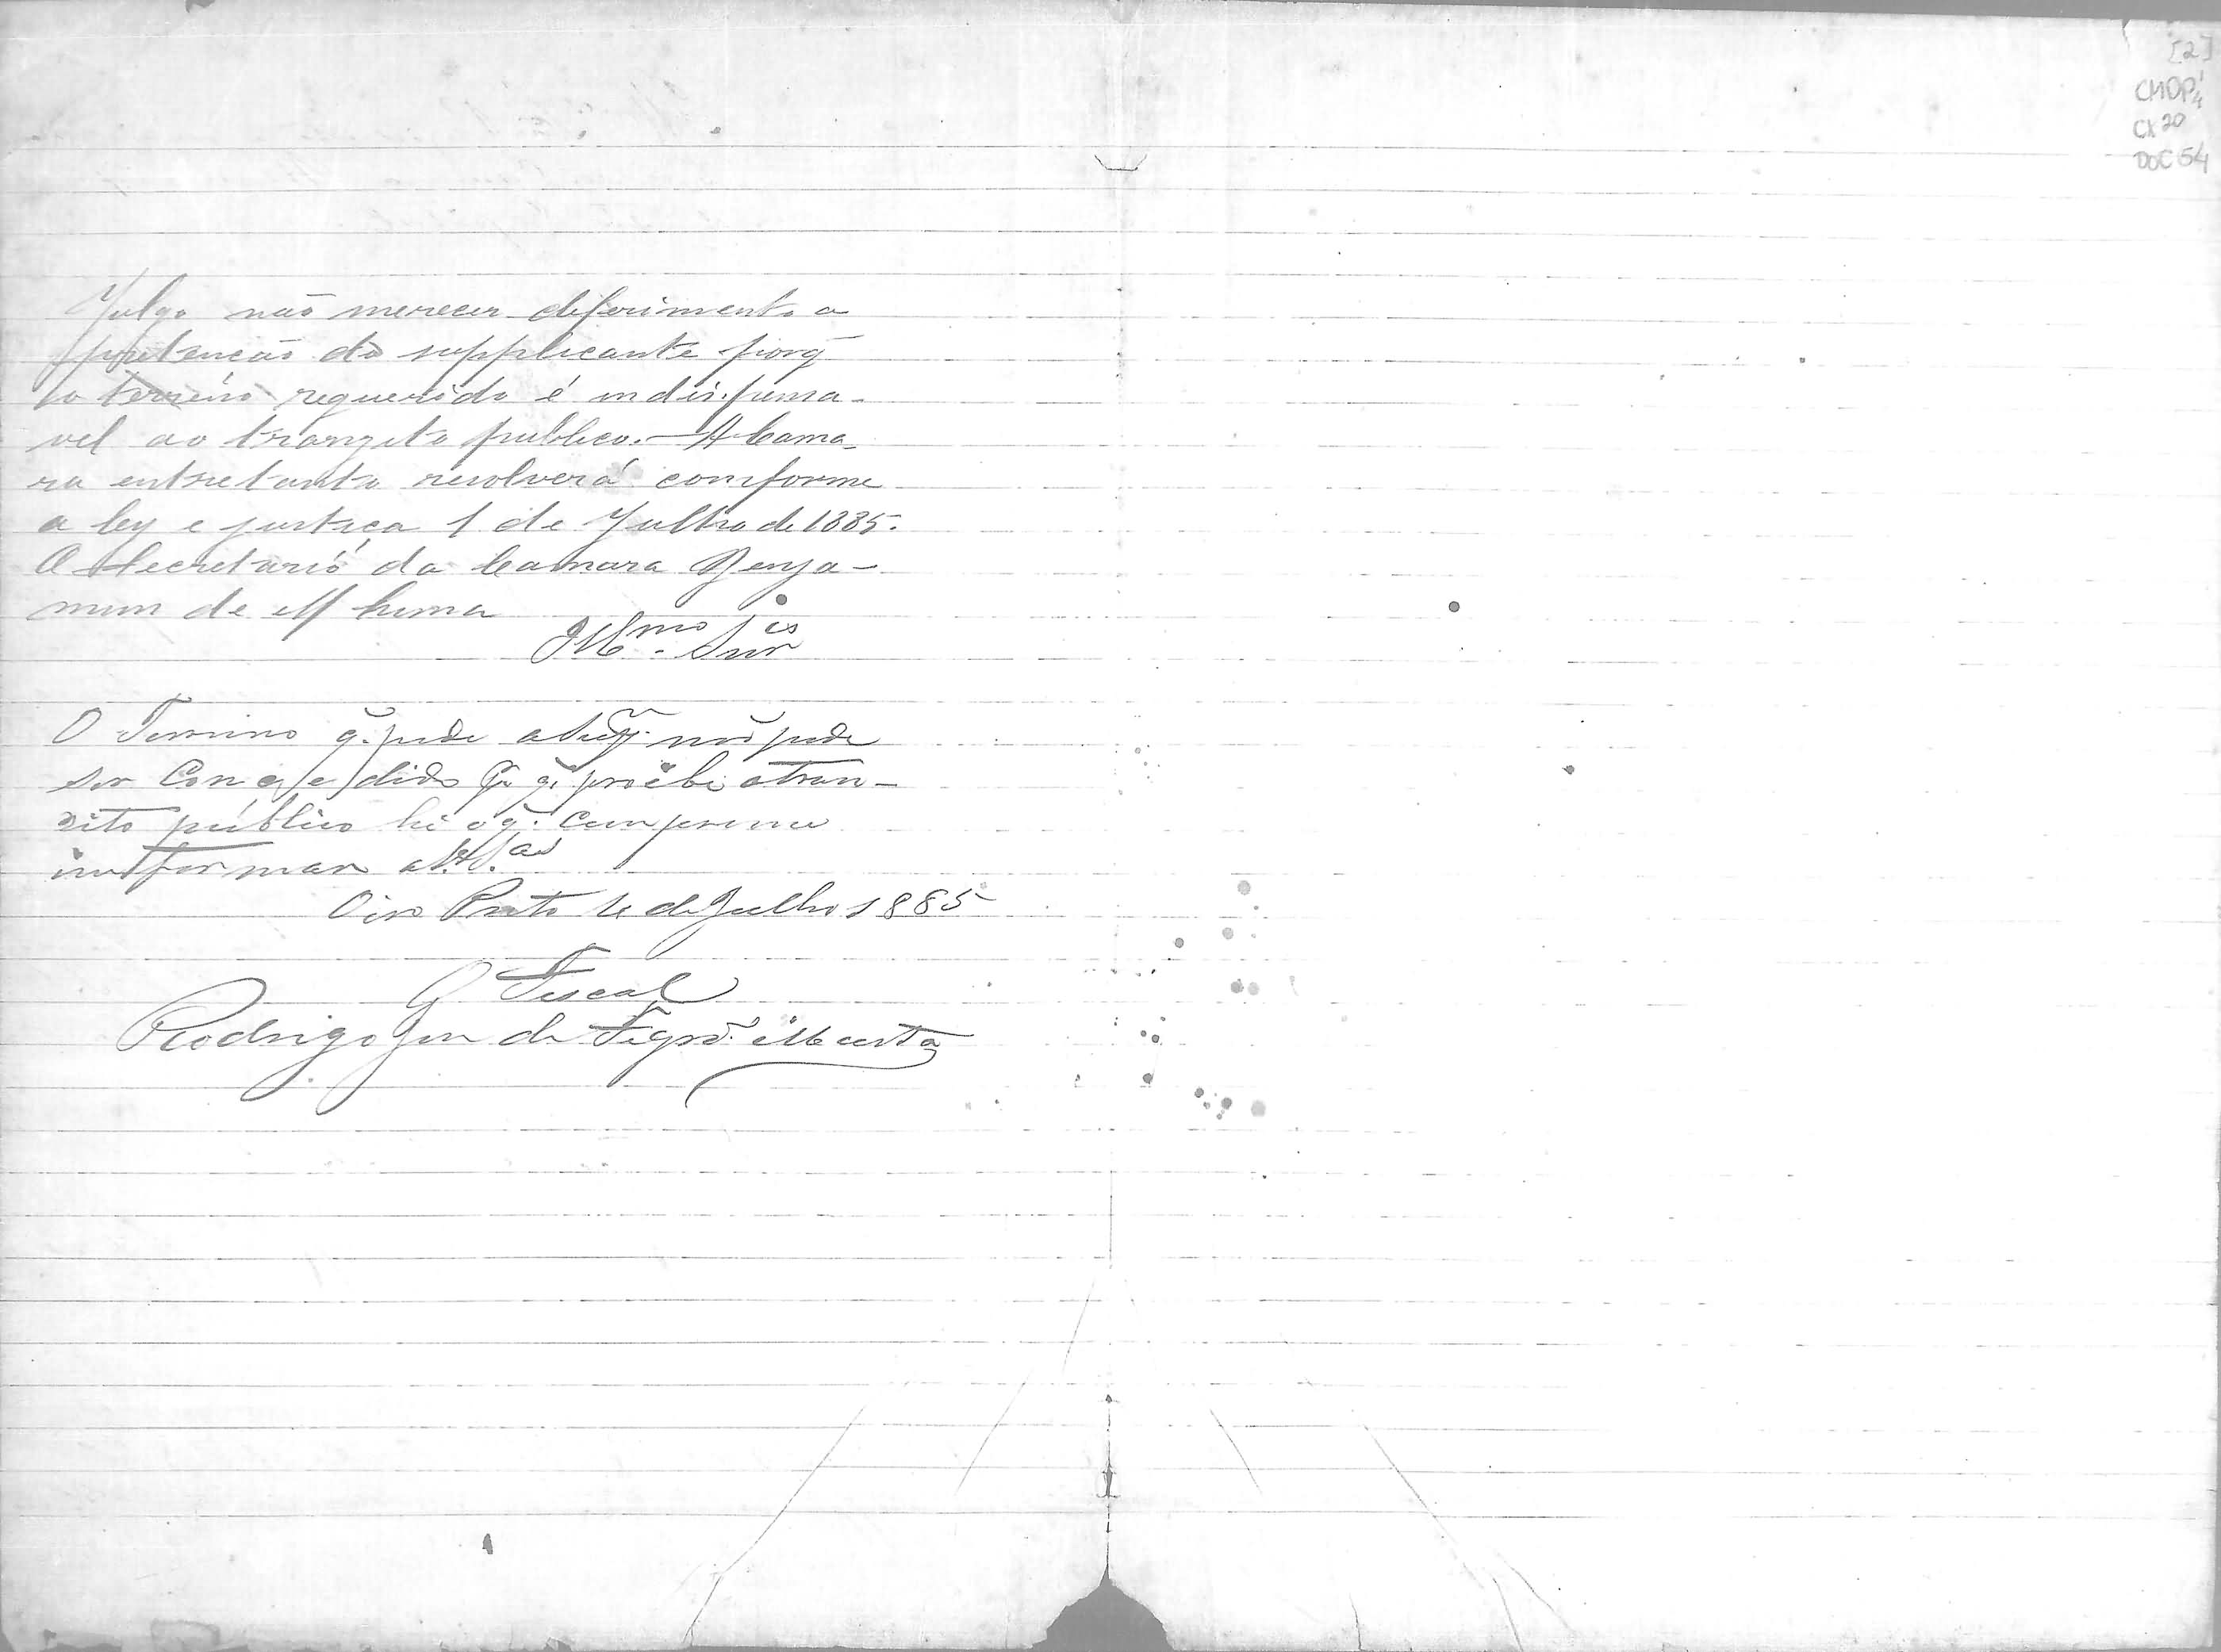 [2]
CMOP
CX 20
DOC 54
Julgo não merecer deferimento a
pretenção do supplicante porq̃
o terreno requerido é indispensa-
vel ao tranzito publico. A Cama-
ra entretanto resolverá comforme
a ley e justiça 1 de Julho de 1885.
O Secretario da Camara Benja-
mim de M Lima
Ill.mos Snr.es
O Terrino q̃. pede não pode
ser Concedido q̃. proêbe o tran-
zito público hé o q̃.
informar a
Oiro Preto de Julho 1885
O Fiscal
Rodrigo de Figrd.o Murta